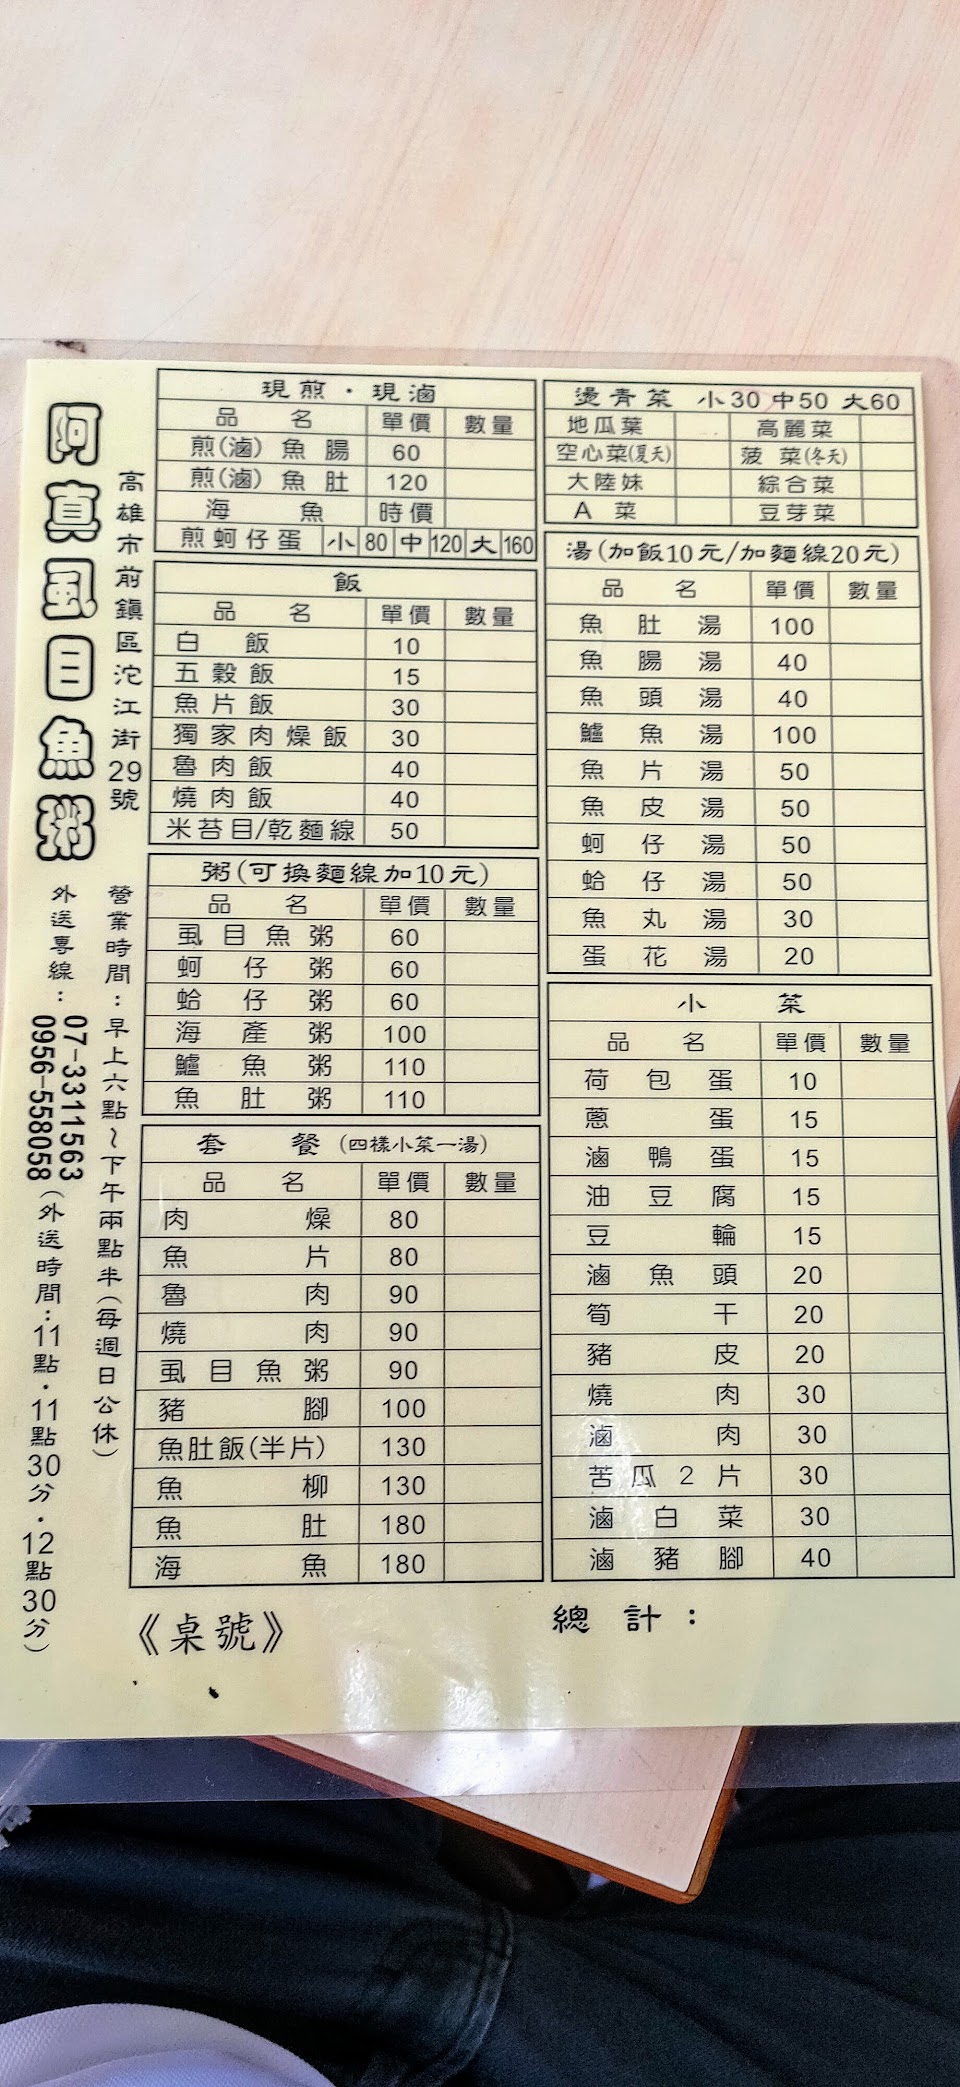 阿真虱目魚粥
高雄市前鎮區沱江街29號
營業時間：早上六點～下午兩點半（每週日公休）
外送專線：07-3311563
0956-558058（外送時間：11點．11點30分．12點30分）
現煎．現滷
品名 單價 數量
煎(滷)魚腸 60
煎(滷)魚肚 120
海魚 時價
煎蚵仔蛋 小 80 中 120 大 160
飯
品名 單價 數量
白飯 10
五穀飯 15
魚片飯 30
獨家肉燥飯 30
魯肉飯 40
燒肉飯 40
米苔目/乾麵線 50
粥(可換麵線加10元)
品名 單價 數量
虱目魚粥 60
蚵仔粥 60
蛤仔粥 60
海產粥 100
鱸魚粥 110
魚肚粥 110
套餐 (四樣小菜一湯)
品名 單價 數量
肉燥 80
魚片 80
魯肉 90
燒肉 90
虱目魚粥 90
豬腳 100
魚肚飯(半片) 130
魚柳 130
魚肚 180
海魚 180
《桌號》
燙青菜 小30 中50 大60
地瓜葉 高麗菜
空心菜(夏天) 菠菜(冬天)
大陸妹 綜合菜
A菜 豆芽菜
湯(加飯10元/加麵線20元)
品名 單價 數量
魚肚湯 100
魚腸湯 40
魚頭湯 40
鱸魚湯 100
魚片湯 50
魚皮湯 50
蚵仔湯 50
蛤仔湯 50
魚丸湯 30
蛋花湯 20
小菜
品名 單價 數量
荷包蛋 10
蔥蛋 15
滷鴨蛋 15
油豆腐 15
豆輪 15
滷魚頭 20
筍干 20
豬皮 20
燒肉 30
滷肉 30
苦瓜2片 30
滷白菜 30
滷豬腳 40
總計：